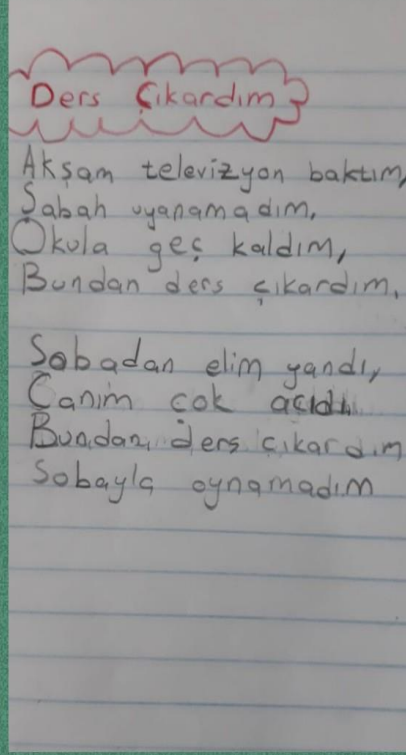 Ders Çıkardım
Akşam televizyon baktım,
Sabah uyanamadım,
Okula geç kaldım,
Bundan ders çıkardım.
Sobadan elim yandı,
Canım çok acıdı
Bundan ders çıkardım
Sobayla oynamadım